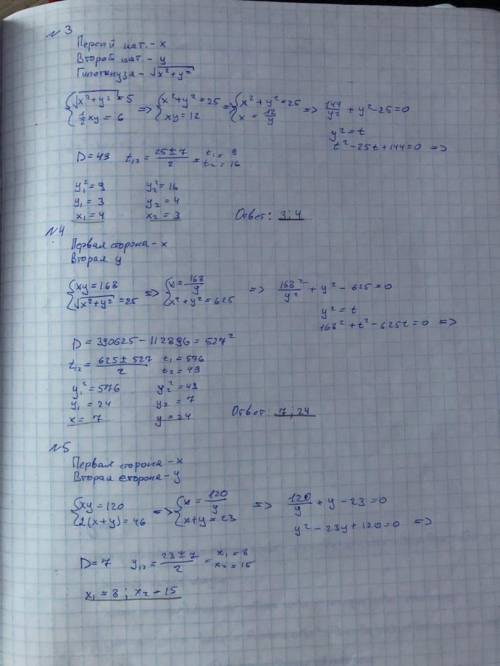 №3
Первый кат. - x
Второй кат. - y
Гипотенуза - √x²+y²
{√x²+y² = 5 {½xy = 6 => {x²+y² = 25 {xy = 12 => {x²+y² = 25 {x = 12/y => 144/y² + y² - 25 = 0
y² = t
t² - 25t + 144 = 0 =>
D = 49 t₁₂ = 25±7/2 = t₁ = 9 t₂ = 16
y₁² = 9 y₂² = 16
y₁ = 3 y₂ = 4
x₁ = 4 x₂ = 3 Ответ: 3; 4
№4
Первая сторона - x
Вторая y
{xy = 168 {√x²+y² = 25 => {x = 168/y {x²+y² = 625 => 168²/y² + y² - 625 = 0
y² = t
168² + t² - 625t = 0 =>
D = 390625 - 112896 = 527²
t₁₂ = 625±527/2 t₁ = 576 t₂ = 49
y₁² = 576 y₂² = 49
y₁ = 24 y₂ = 7
x = 7 y = 24 Ответ: 7, 24
№5
Первая сторона - x
Вторая сторона - y
{xy = 120 {2(x+y) = 46 => {x = 120/y {x+y = 23 => 120/y + y - 23 = 0
y² - 23y + 120 = 0 =>
D = 7 y₁₂ = 23±7/2 = x₁ = 8 x₂ = 15
x₁ = 8; x₂ = 15